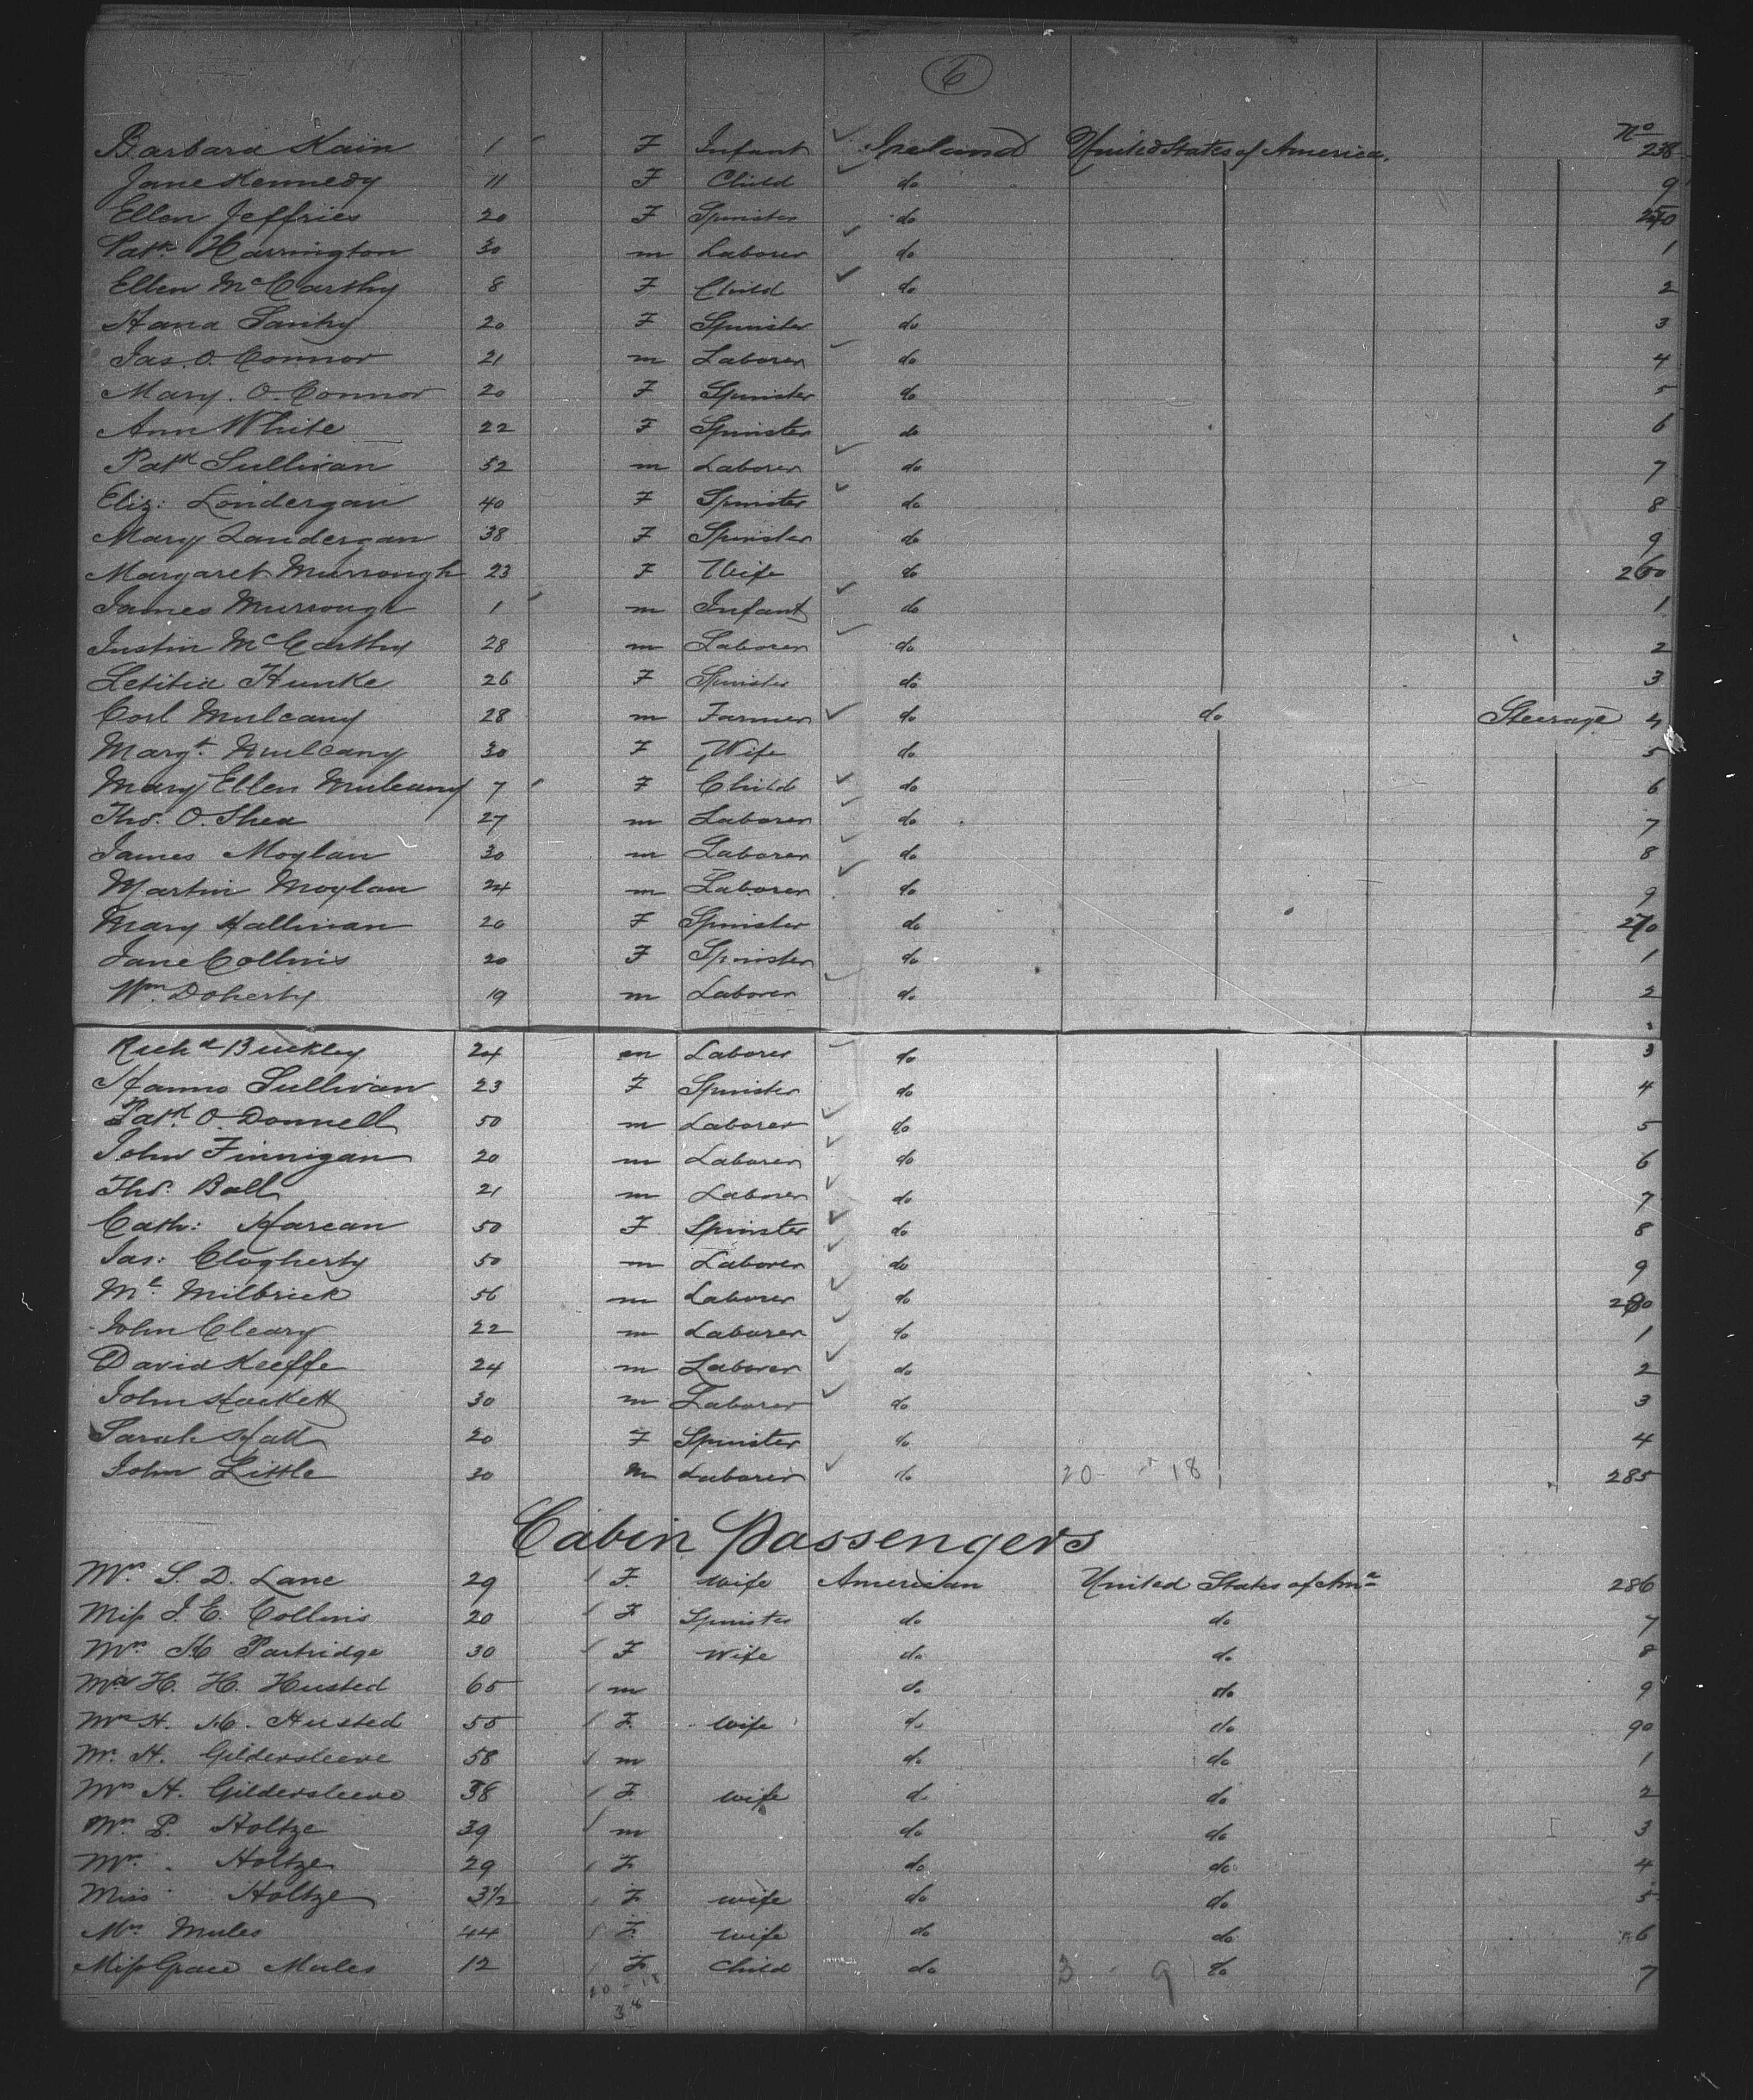 6
Barbara Kain 1 F Infant Ireland United States of America. No 238
Jane Kennedy 11 F Child do 9
Ellen Jeffries 20 F Spinster do 240
Patk Harrington 30 m Laborer do 1
Ellen McCarthy 8 F Child do 2
Hana 20 F Spinster do 3
Jas. O. Connor 21 m Laborer do 4
Mary. O. Connor 20 F Spinster do 5
Ann White 22 F Spinster do 6
Patk Sullivan 52 m Laborer do 7
Eliz: Londergan 40 F Spinster do 8
Mary Landergan 38 F Spinster do 9
Margaret Murrough 23 F Wife do
James Murrough 1 m Infant do 1
Justin McCarthy 28 m Laborer do 2
Letitia Hunke 26 F Spinster do 3
Mulcany 28 m Farmer do do Steerage 4
Margt. Mulcany 30 F Wife do 5
Mary Ellen Mulcany 7 F Child do 6
Thos. O. Shea 27 m Laborer do 7
James Moylan 30 m Laborer do 8
Martin Moylan 24 m Laborer do 9
Mary Hallinan 20 F Spinster do 270
Jane Collins 20 F Spinster do 1
Wm. Doherty 19 m Laborer do 2
Richd Buckley 24 m Laborer do 3
Hanna Sullivan 23 F Spinster do 4
Patk. O. Donnell 50 m Laborer do 5
John Finnigan 20 m Laborer do 6
Thos. Ball 21 m Laborer do 7
Cath: Harcan 50 F Spinster do 8
Jas: Clogherty 50 m Laborer do 9
Ml. Milbrick 56 m Laborer do 280
John Cleary 22 m Laborer do 1
David Keeffe 24 m Laborer do 2
John Hackett 30 m Laborer do 3
Sarah Hall 20 F Spinster do 4
John Little 30 m Laborer do 20 18 285
Cabin Passengers
Mrs. S. D. Lane 29 F. wife American United States of Ama 286
Miss J. E. Collins 20 F Spinster do do 7
Mrs. H Partridge 30 F Wife do do 8
Mr H. H. Husted 65 m do do 9
Mrs H. H. Husted 55 F. wife do do 90
Mr. H. Gildersleeve 58 m do do 1
Mrs H. Gildersleeve 38 F. wife do do 2
Mr. P. Holtze 39 m do do 3
Mrs. Holtze 29 F do do 4
Miss Holtze 3½ F wife do do 5
Mrs Mules 44 F. wife do do 6
Miss Grace Mules 12 F Child do 3 9 do 7